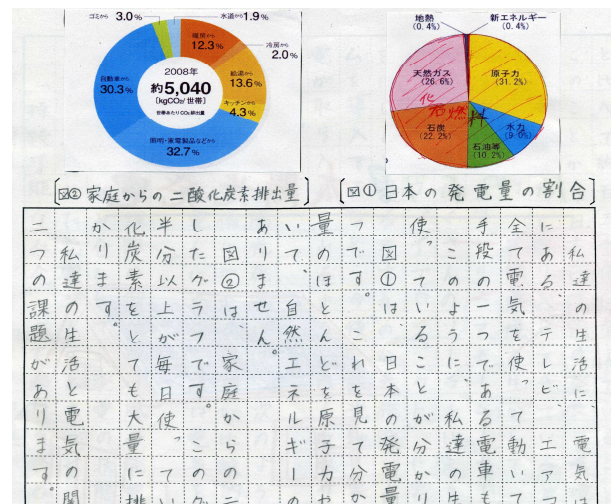 ゴミから 3.0%
水道から 1.9%
暖房から 12.3%
冷房から 2.0%
給湯から 13.6%
キッチンから 4.3%
照明・家電製品などから 32.7%
自動車から 30.3%
2008年
約5,040
(kgCO₂/世帯)
世帯あたりCO₂排出量
地熱 (0.4%)
新エネルギー (0.4%)
原子力 (31.2%)
水力 (9.0%)
石油等 (10.2%)
石炭 (22.2%)
天然ガス (26.6%)
化石燃料
[図② 家庭からの二酸化炭素排出量]
[図① 日本の発電量の割合]
私達の生活に、電気は
にある、テレビ、エア
全て電気を使って動いて
手段の一つである電車も
このように、私達の生
使っていることが分かり
図①は、日本の発電量
つです。これを見て分か
量のほとんどを原子力や
いて、自然エネルギーの
ありません。
図②は、家庭からの二
したグラフです。このグ
半分以上が毎日使ってい
化炭素をとても大量に排
かります。
私達の生活と電気の関
二つの課題があります。